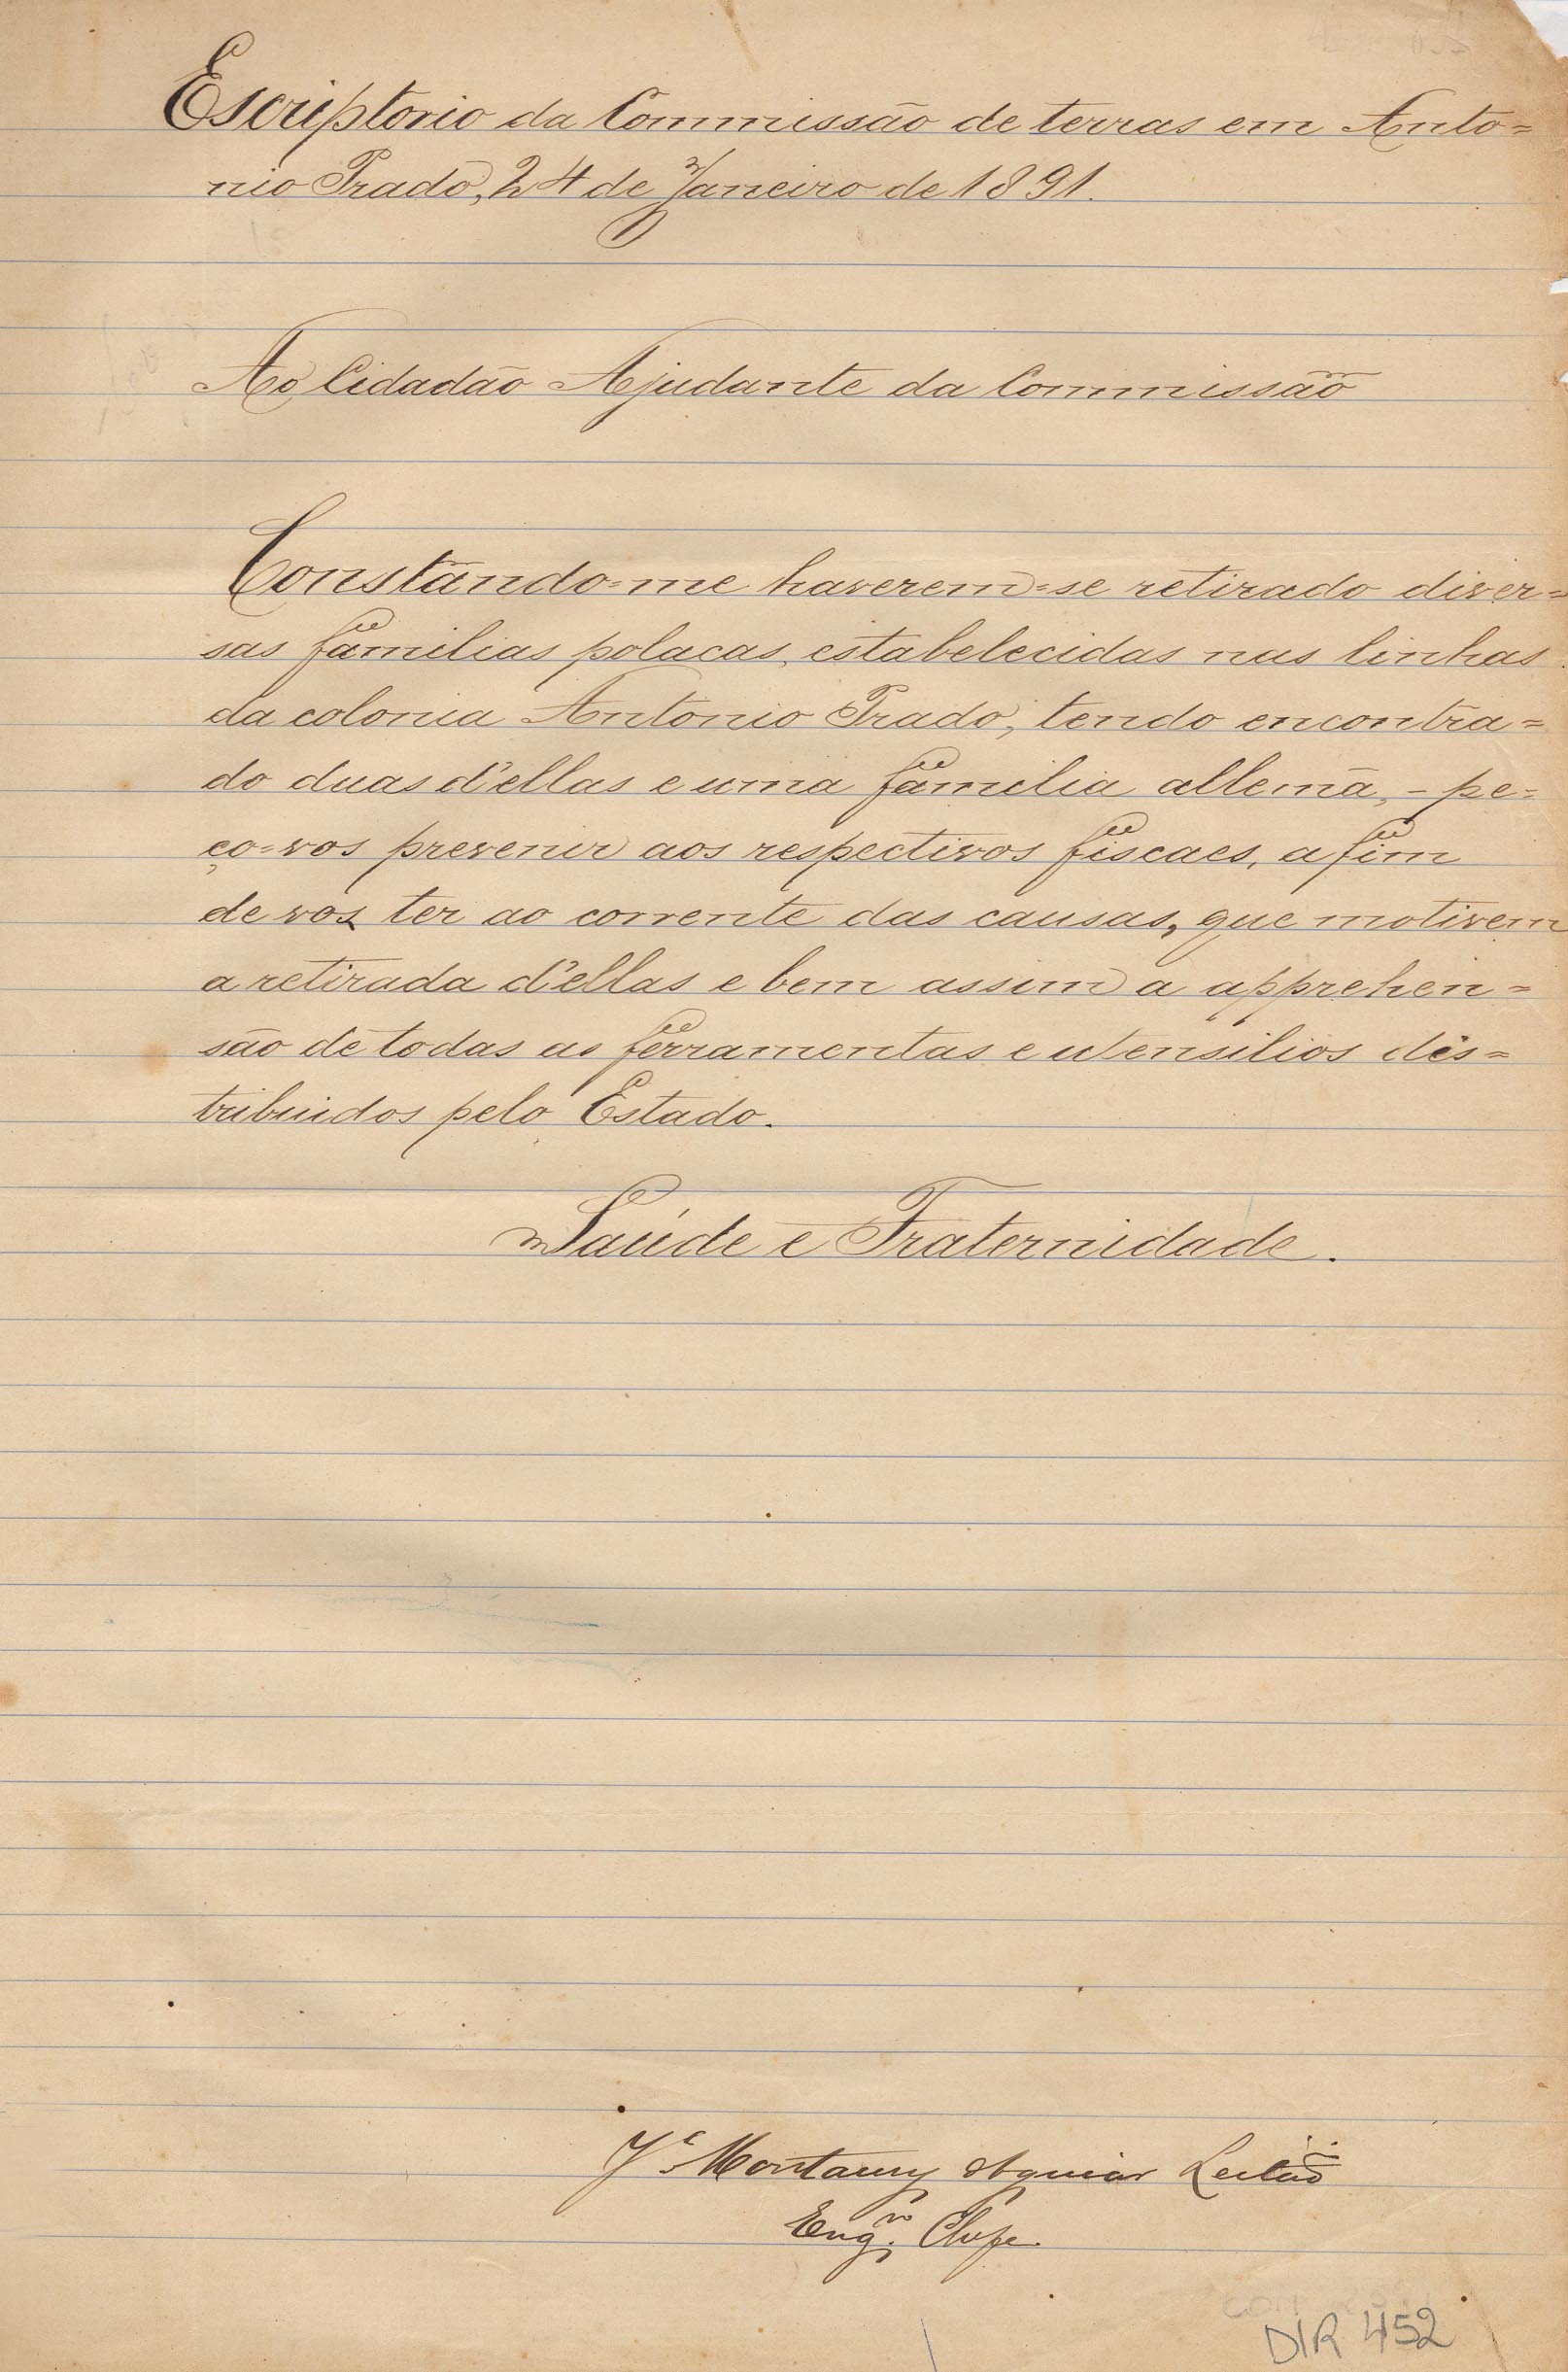 Escriptorio da Commissão de terras em Anto=
nio Prado, 24 de Janeiro de 1891.
Ao Cidadão Ajudante da Commissão
Constando=me haverem=se retirado diver=
sas familias polacas, estabelecidas nas linhas
da colonia Antonio Prado, tendo encontra=
do duas d'ellas e uma familia allemã, - pe=
ço=vos prevenir aos respectivos fiscaes, a fim
de vos ter ao corrente das causas, que motivem
a retirada d'ellas e bem assim a apprehen=
são de todas as ferramentas e utensilios dis=
tribuidos pelo Estado.
Saúde e Fraternidade.
Je Montaury Aguiar Leitão
Engro Chefe
DIR 452